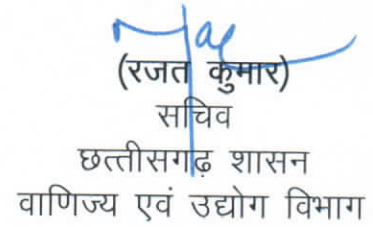 (रजत कुमार)
सचिव
छत्तीसगढ़ शासन
वाणिज्य एवं उद्योग विभाग